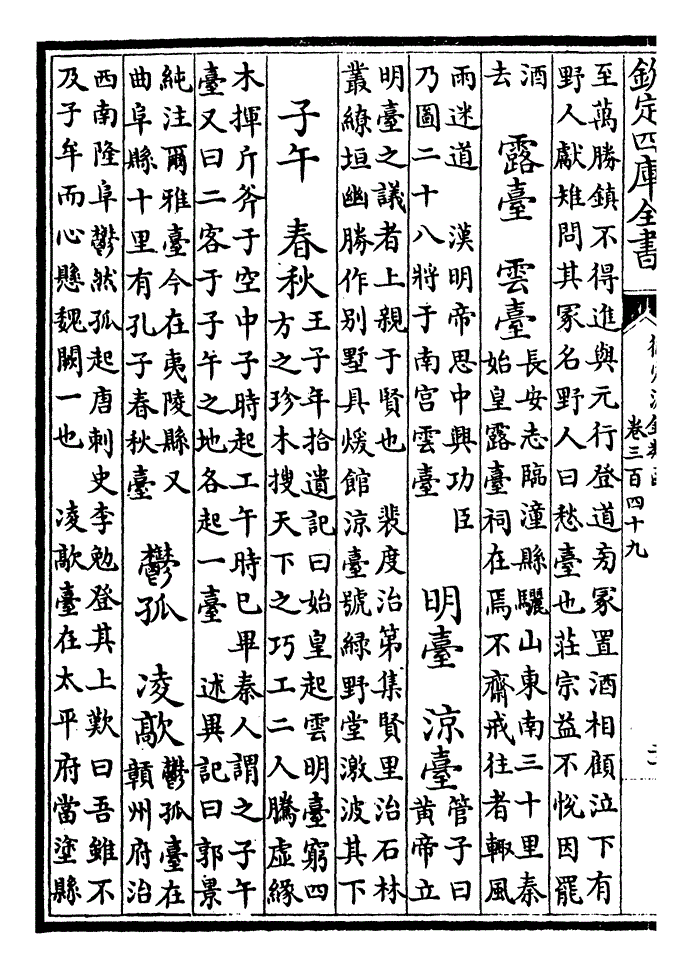 欽定四庫全書
卷三百四十九
至萬勝鎮不得進與元行登道旁冢置酒相顧泣下有
野人獻雉問其冢名野人曰愁臺也莊宗益不悅因罷
酒
去
露臺 雲臺
長安志臨潼縣驪山東南三十里秦
始皇露臺祠在焉不齋戒往者輙風
雨迷道 漢明帝思中興功臣
乃圖二十八將于南宮雲臺
明臺 涼臺
管子曰
黃帝立
明臺之議者上親于賢也 裴度治第集賢里治石林
叢繚垣幽勝作别墅具煖館涼臺號緑野堂激波其下
子午 春秋
王子年拾遺記曰始皇起雲明臺窮四
方之珍木搜天下之巧工二人騰虛緣
木揮斤斧于空中子時起工午時已畢秦人謂之子午
臺又曰二客于子午之地各起一臺 述異記曰郭景
純注爾雅臺今在夷陵縣又
曲阜縣十里有孔子春秋臺
鬱孤 凌歊
鬱孤臺在
贛州府治
西南隆阜鬱然孤起唐刺史李勉登其上歎曰吾雖不
及子牟而心懸魏闕一也 凌歊臺在太平府當塗縣